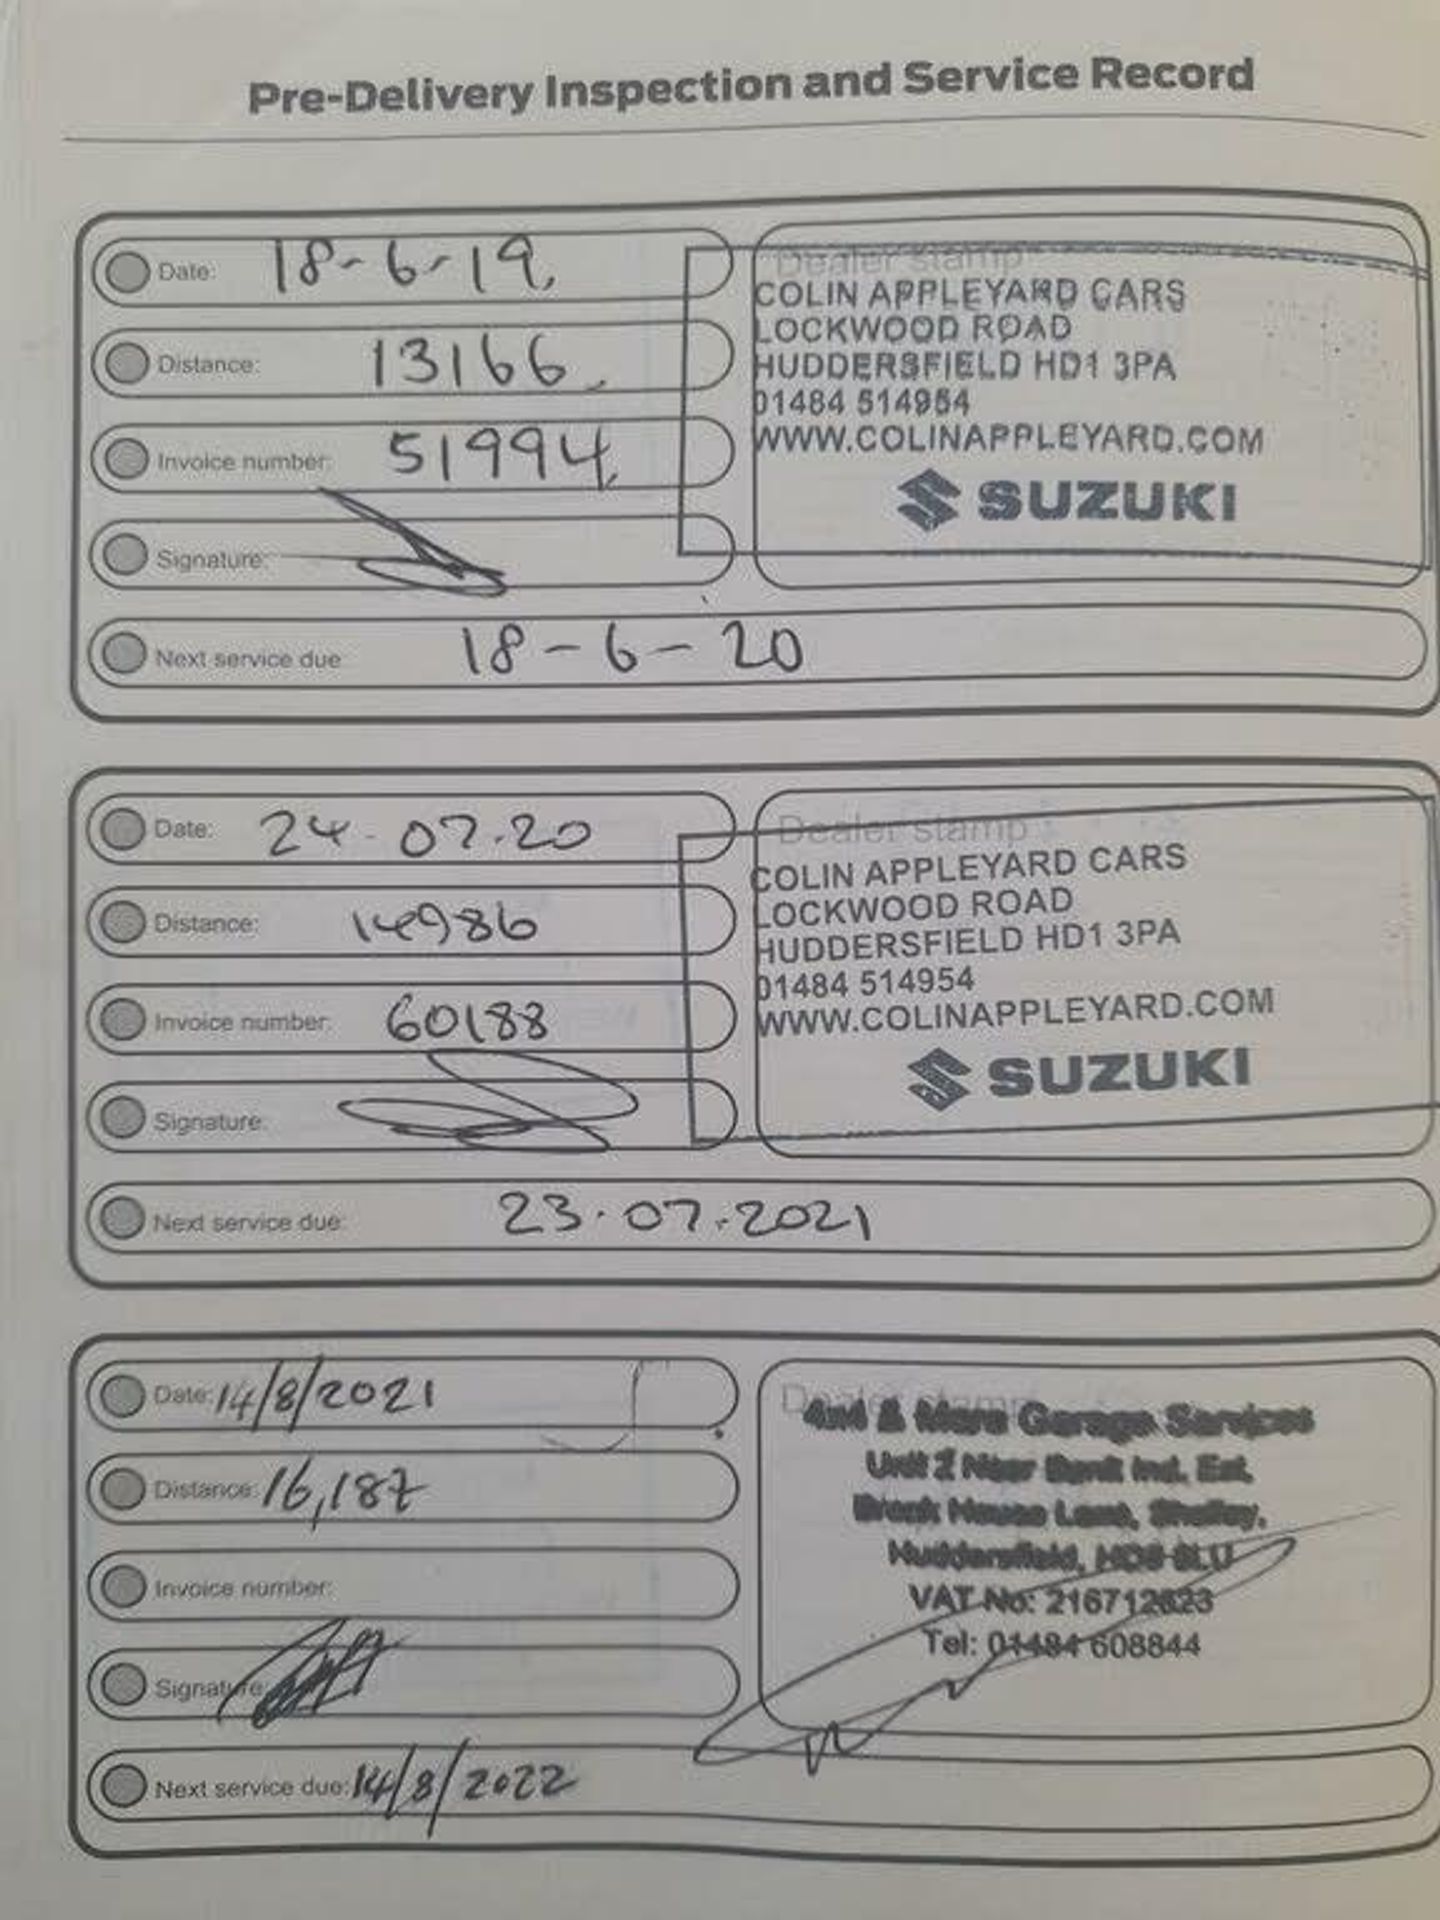 Pre-Delivery Inspection and Service Record
Date: 18-6-19.
Distance: 13166.
Invoice number: 51994.
Signature:
Next service due 18-6-20
Dealer stamp
COLIN APPLEYARD CARS
LOCKWOOD ROAD
HUDDERSFIELD HD1 3PA
01484 514954
WWW.COLINAPPLEYARD.COM
SUZUKI
Date: 24.07.20
Distance: 14986
Invoice number: 60188
Signature:
Next service due: 23.07.2021
Dealer stamp
COLIN APPLEYARD CARS
LOCKWOOD ROAD
HUDDERSFIELD HD1 3PA
01484 514954
WWW.COLINAPPLEYARD.COM
SUZUKI
Date: 14/8/2021
Distance: 16,187
Invoice number:
Signature:
Next service due: 14/8/2022
Dealer stamp
4x4 & More Garage Services
Unit 2 Near Bank Ind. Est.
Brook House Lane, Shelley,
Huddersfield, HD8
VAT No: 216712623
Tel: 01484 608844